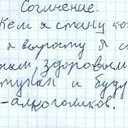 Сочинение.
Кем я стану ко
я вырасту я с
ным, здоровым
тупил и буду
-алкоголиков!